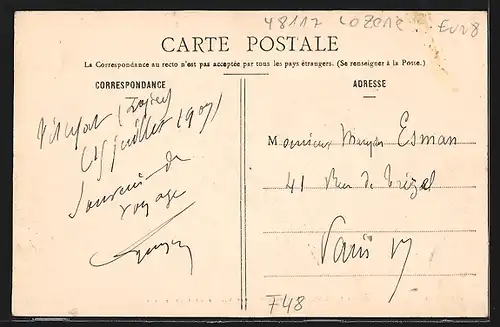 48117 LOZERE EUR8
CARTE POSTALE
La Correspondance au recto n'est pas acceptée par tous les pays étrangers. (Se renseigner à la Poste.)
CORRESPONDANCE
ADRESSE
Villefort (Lozère)
(15 juillet 1907)
Souvenir de
voyage
Monsieur Esman
41 Rue de
Paris
F48